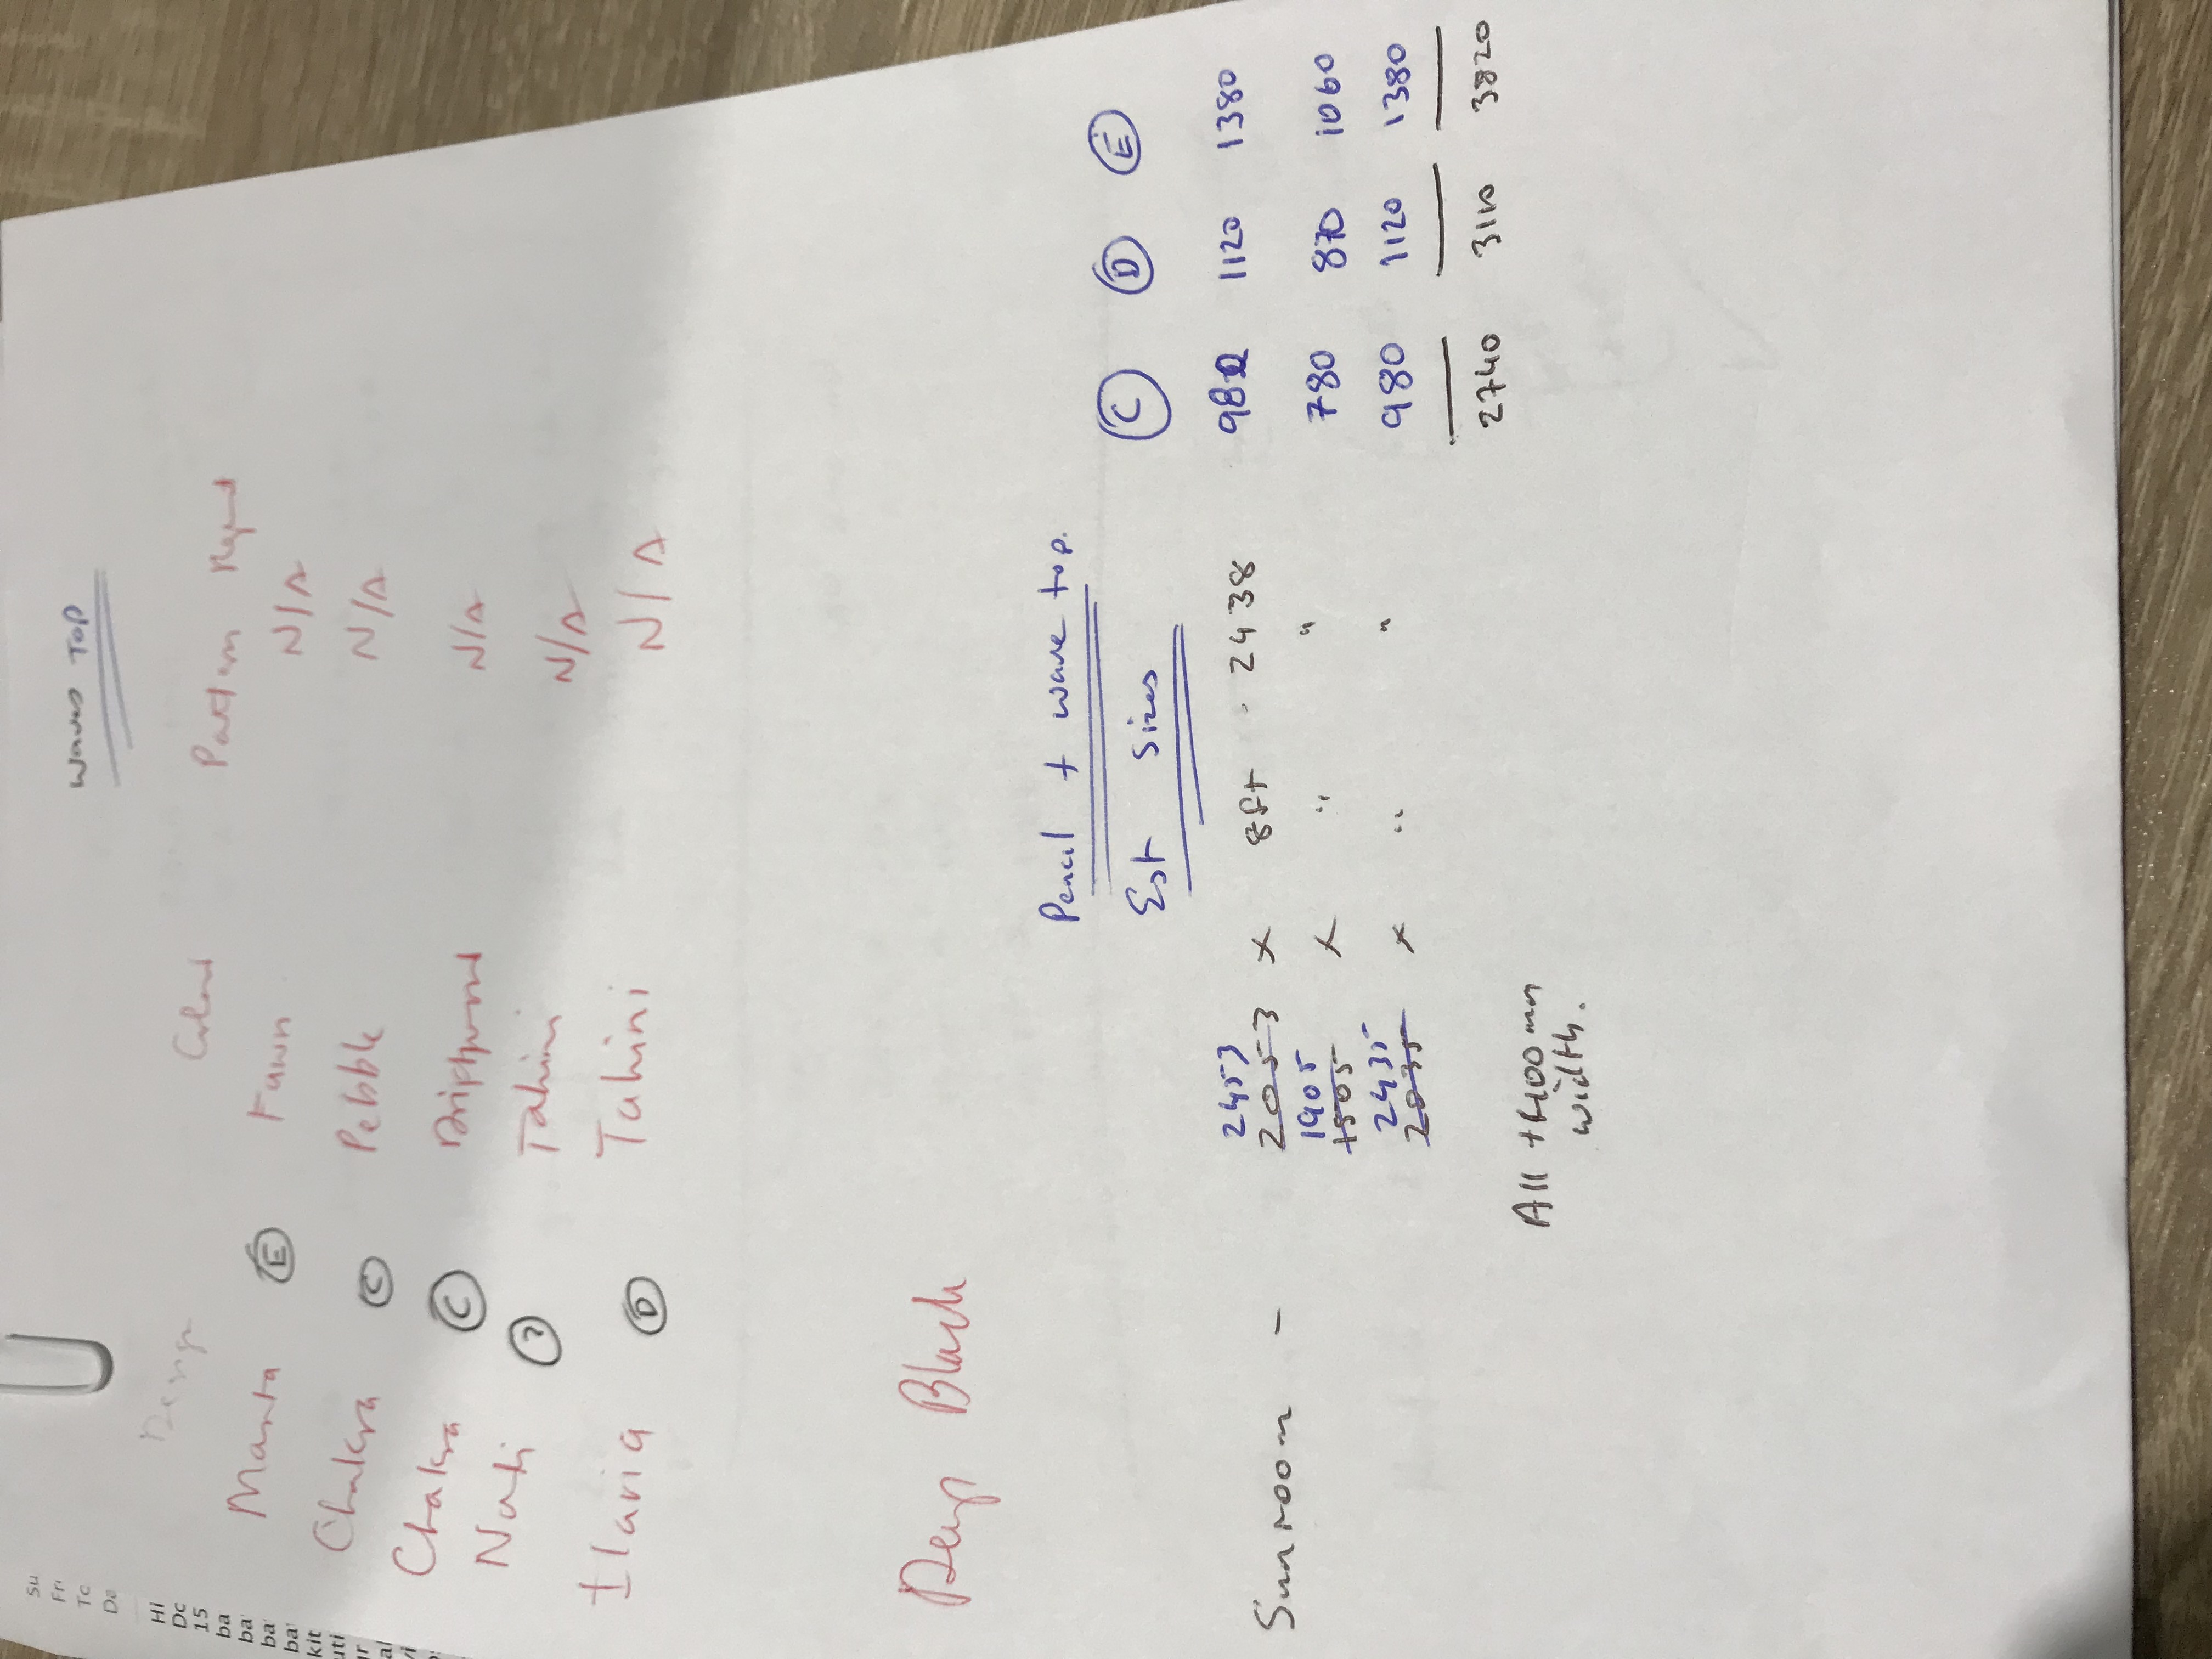 Waves Top
Design Colour Pattern Repeat
Manta E Fawn N/A
Chakra C Pebble N/A
Chakra C Driftwood N/A
Nati ? Tahini N/A
Ilaria D Tahini N/A
Pencil + wave top.
Deep Black Est Sizes C D E
2453
Sunroom - 2053 x 8ft 2438 980 1120 1380
1905
1505 x " " 780 870 1060
2435
2035 x " " 980 1120 1380
2740 3110 3820
All +400mm
width.
Su
Fri
To
Da
Hi
Dc
15
ba
ba
ba
ba
kit
uti
ur
al